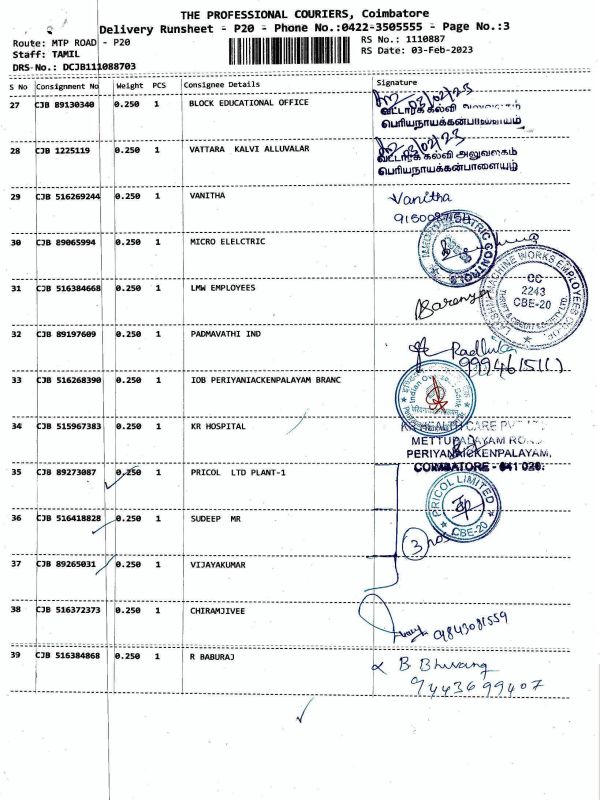 THE PROFESSIONAL COURIERS, Coimbatore
Delivery Runsheet - P20 - Phone No.:0422-3505555 - Page No.:3
Route: MTP ROAD - P20
RS No.: 1110887
Staff: TAMIL
RS Date: 03-Feb-2023
DRS-No.: DCJB111088703
S No Consignment No Weight PCS Consignee Details Signature
27 CJB 89130340 0.250 1 BLOCK EDUCATIONAL OFFICE
03/02/23
வட்டாரக் கல்வி அலுவலகம்
பெரியநாயக்கன்பாளையம்
28 CJB 1225119 0.250 1 VATTARA KALVI ALLUVALAR
03/02/23
வட்டாரக் கல்வி அலுவலகம்
பெரியநாயக்கன்பாளையம்
29 CJB 516269244 0.250 1 VANITHA
Vanitha
30 CJB 89065994 0.250 1 MICRO ELELCTRIC
31 CJB 516384668 0.250 1 LMW EMPLOYEES
Saranya
LAKSHMI MACHINE WORKS EMPLOYEES CO-OP
THRIFT & CREDIT SOCIETY LTD.
CC
2243
CBE-20
32 CJB 89197609 0.250 1 PADMAVATHI IND
33 CJB 516268390 0.250 1 IOB PERIYANIACKENPALAYAM BRANC
34 CJB 515967383 0.250 1 KR HOSPITAL
KR HEALTH CARE
METTUPALAYAM ROAD
PERIYANAICKENPALAYAM,
COIMBATORE - 641 020.
35 CJB 89273087 0.250 1 PRICOL LTD PLANT-1
PRICOL LIMITED
CBE-20
36 CJB 516418828 0.250 1 SUDEEP MR
3 nos
37 CJB 89265031 0.250 1 VIJAYAKUMAR
38 CJB 516372373 0.250 1 CHIRAMJIVEE
9843081559
39 CJB 516384868 0.250 1 R BABURAJ
9443699407